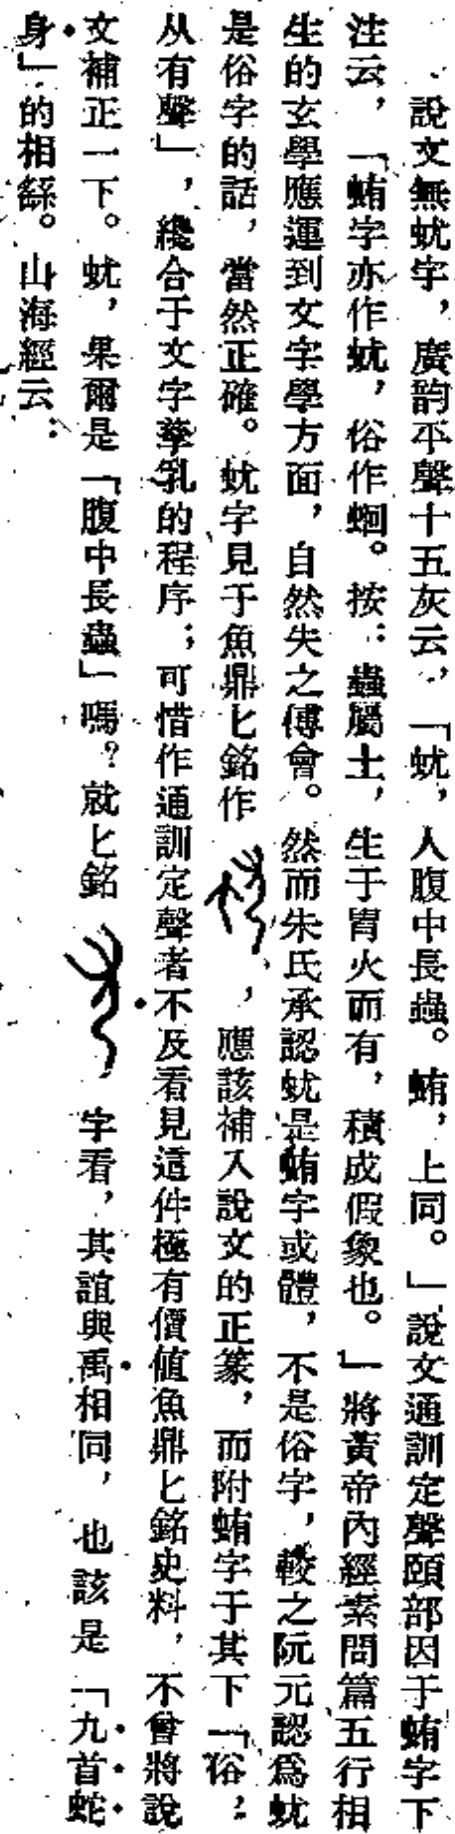 說文無蚘字,廣韵平聲十五灰云,「蚘,人腹中長蟲。蛕,上同。」說文通訓定聲頤部因于蛕字下
注云,「蛕字亦作蚘,俗作蛔。按:蟲屬土,生于胃火而有,積成假象也。」將黃帝內經素問篇五行相
生的玄學應運到文字學方面,自然失之傅會。然而朱氏承認蚘是蛕字或體,不是俗字,較之阮元認爲蚘
是俗字的話,當然正確。蚘字見于魚鼎匕銘作 ,應該補入說文的正篆,而附蛕字于其下「俗,
从有聲」,纔合于文字孳乳的程序;可惜作通訓定聲者不及看見這件極有價値魚鼎匕銘史料,不曾將說
文補正一下。蚘,果爾是「腹中長蟲」嗎?就匕銘 字看,其誼與禹相同,也該是「九首蛇
身」的相繇。山海經云: